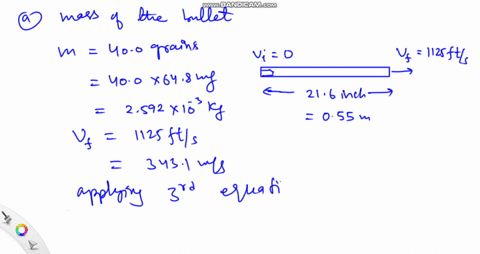 WWW.BANDICAM.COM
ⓐ mass of the bullet
m = 40.0 grains
= 40.0 × 64.8 mg
= 2.592 × 10⁻³ Kg
V_f = 1125 ft/s
= 343.1 m/s
applying 3rd equati
V_i = 0
V_f = 1125 ft/s
21.6 inch
= 0.55 m